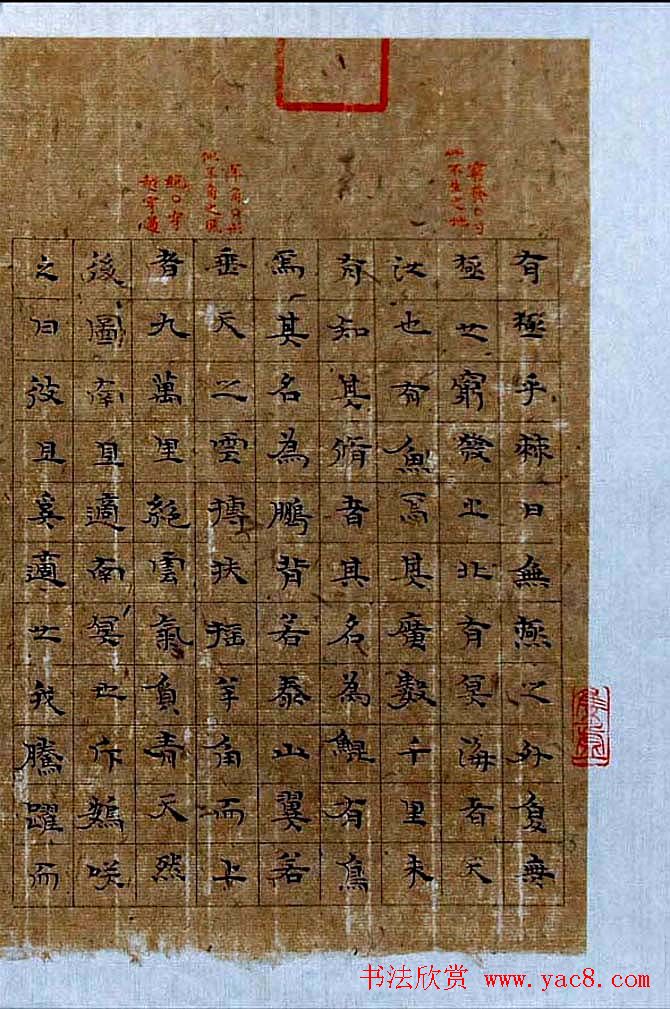 不毛之地
羊角
有極乎棘曰無極之外復無
極也窮發之北有冥海者天
池也有魚焉其廣數千里未
有知其脩者其名為鯤有鳥
焉其名為鵬背若泰山翼若
垂天之雲摶扶搖羊角而上
者九萬里絕雲氣負青天然
後圖南且適南冥也斥鴳咲
之曰彼且奚適也我騰躍而
书法欣赏 www.yac8.com